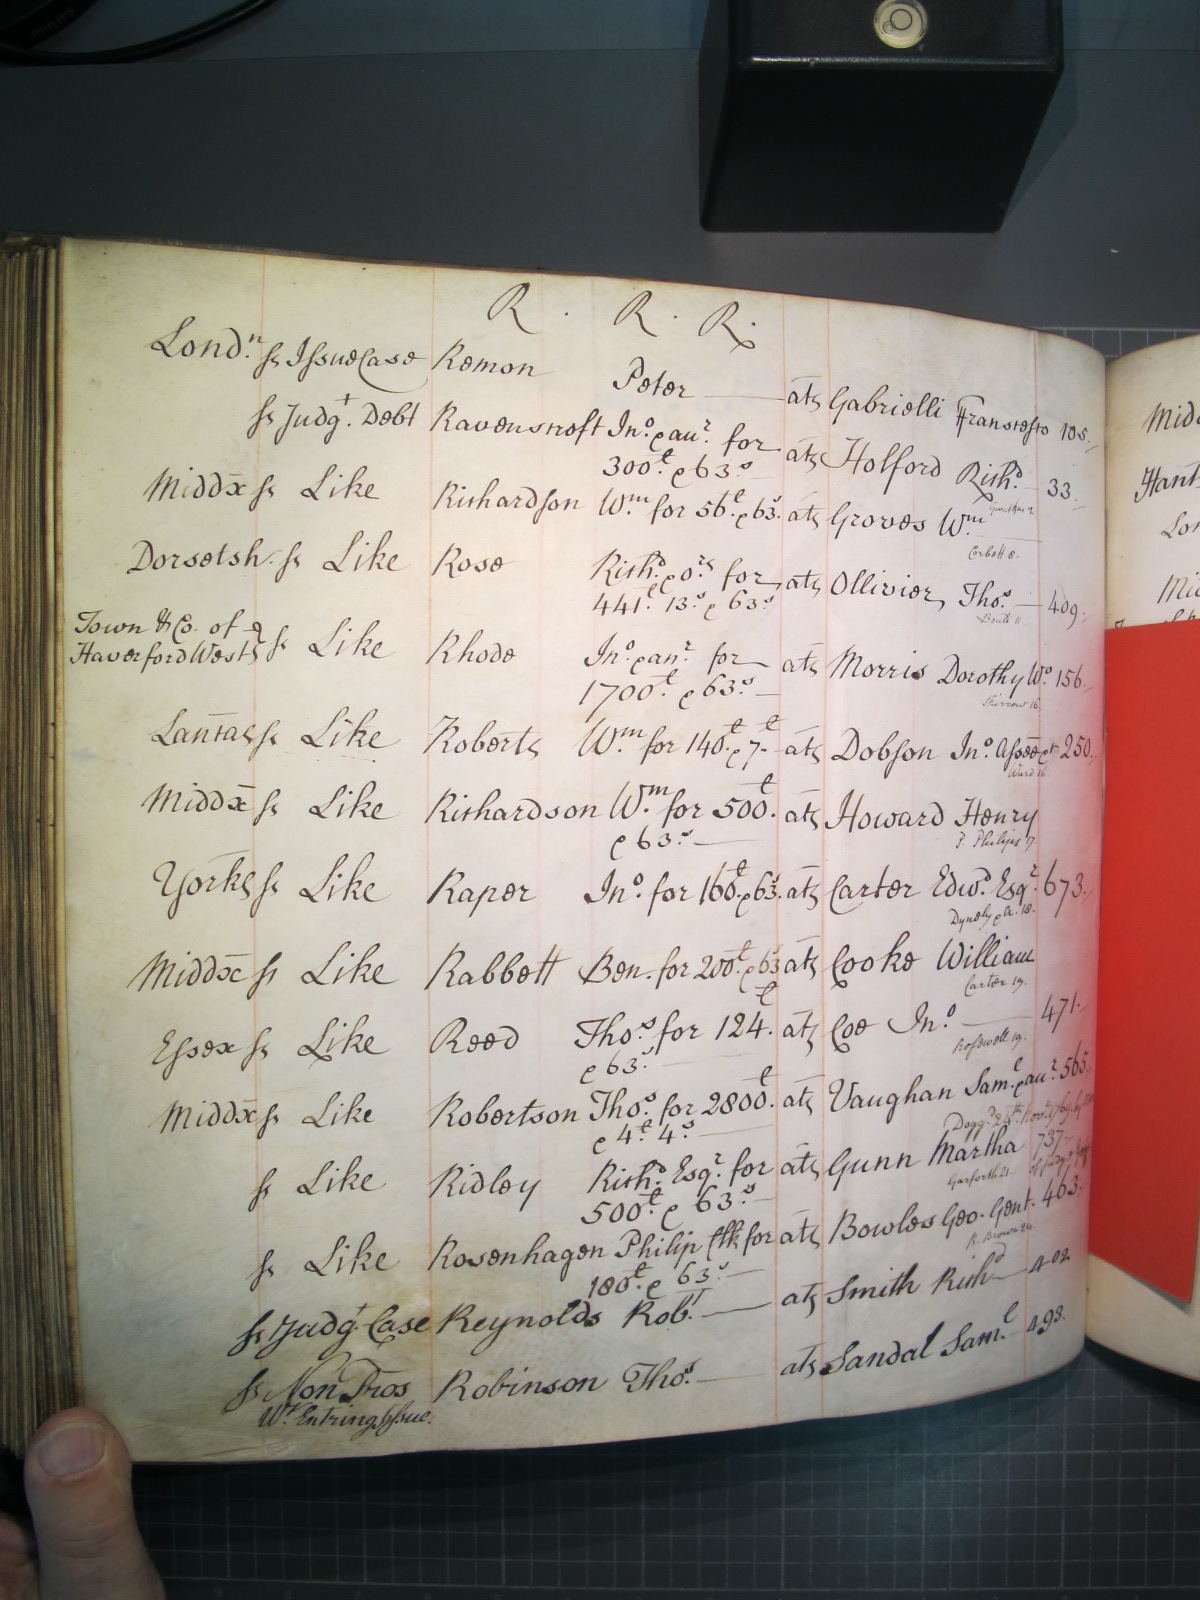 R. R. R.
Lond.n ss Issue Case Remon Peter ats Gabrielli Francesco 105.
ss Judg.t Debt Ravenscroft Jno. & anr. for ats Holford Richd. 33.
300.£ & 63.s
Middx ss Like Richardson Wm. for 56.£ & 63.s ats Groves Wm.
Corbett 8.
Dorsetsh. ss Like Rose Richd. & ors. for ats Ollivier Thos. 409.
441.£ 13.s & 63.s
Town & Co. of
Haverford West ss Like Rhode Jno. & anr. for ats Morris Dorothy Wo. 156.
1700.£ & 63.s Skirrow 16.
Lancas ss Like Roberts Wm. for 140.£ & 7.£ ats Dobson Jno. Assee &c 250.
Ward 16.
Middx ss Like Richardson Wm. for 500.£ ats Howard Henry
& 63.s P. Philips 17
Yorks ss Like Raper Jno. for 160.£ & 63.s ats Carter Edwd. Esqr. 673.
Dynely & Co. 18.
Middx ss Like Rabbett Ben. for 200.£ & 63 ats Cooke William
Carter 19.
Essex ss Like Reed Thos. for 124.£ ats Coe Jno. 471.
& 63.s Roswell 19.
Middx ss Like Robertson Thos. for 2800.£ ats Vaughan Saml. & anr. 565.
& 4.£ 4.s
ss Like Ridley Richd. Esqr. for ats Gunn Martha 737.
500.£ & 63.s Garforth 21.
ss Like Rosenhagen Philip Clk for ats Bowles Geo. Gent. 463.
180.£ & 63.s R. Brown 24.
ss Judg.t Case Reynolds Robt. ats Smith Richd. 402
ss Non Pros Robinson Thos. ats Sandal Saml. 493.
Wt. Entring Issue.
Midd
Hant
Lon
Mid